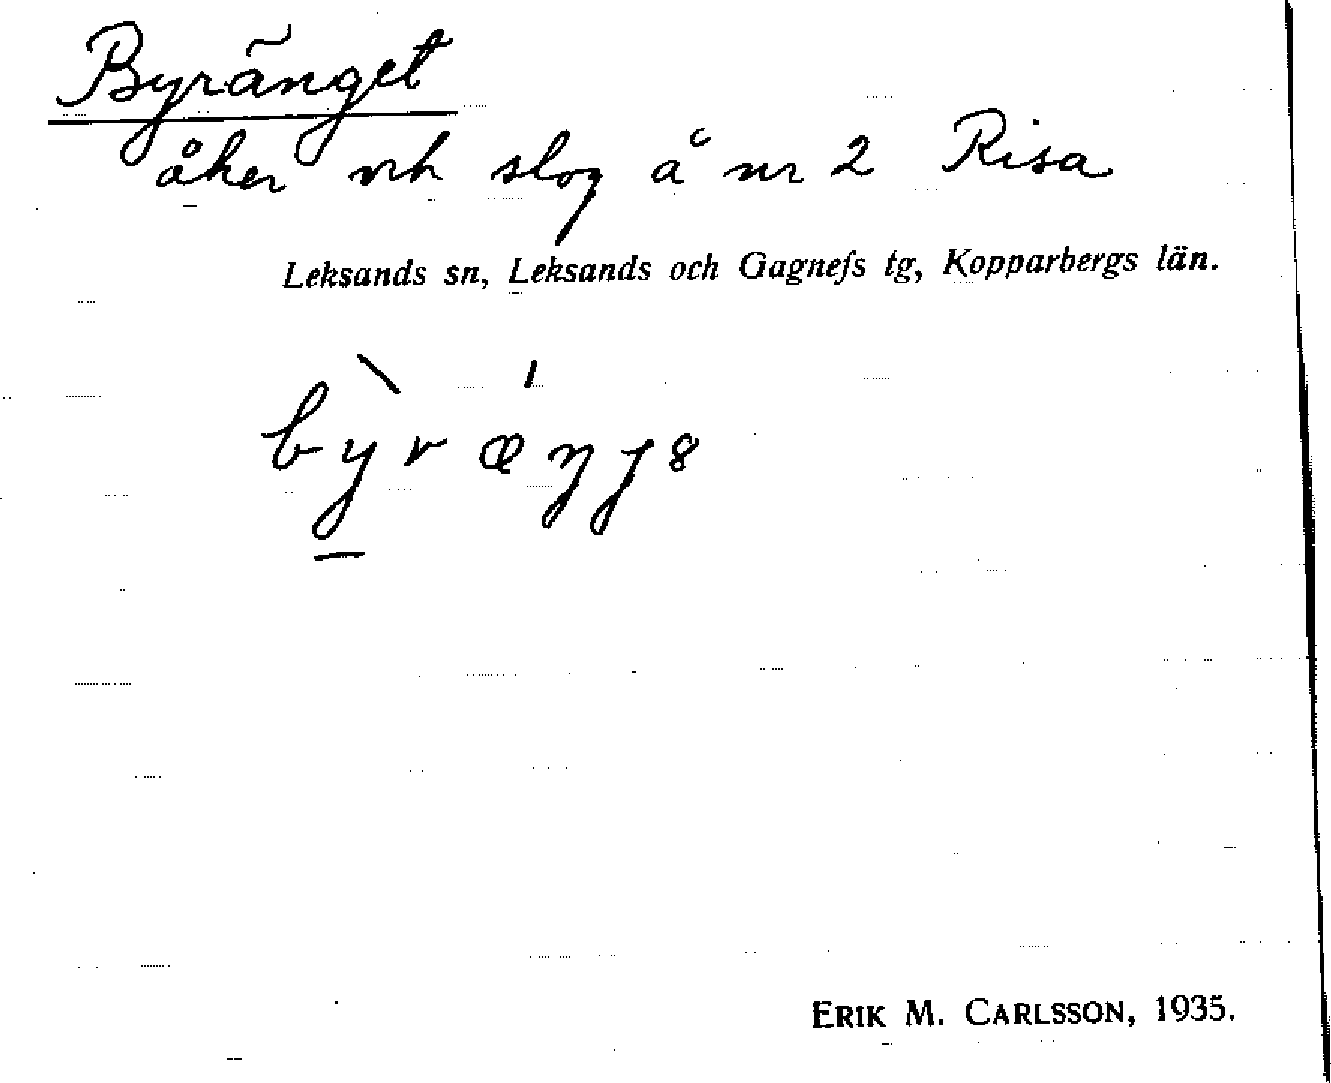 Byränget
åker och slog å nr 2 Risa
Leksands sn, Leksands och Gagnefs tg, Kopparbergs län.
ERIK M. CARLSSON, 1935.